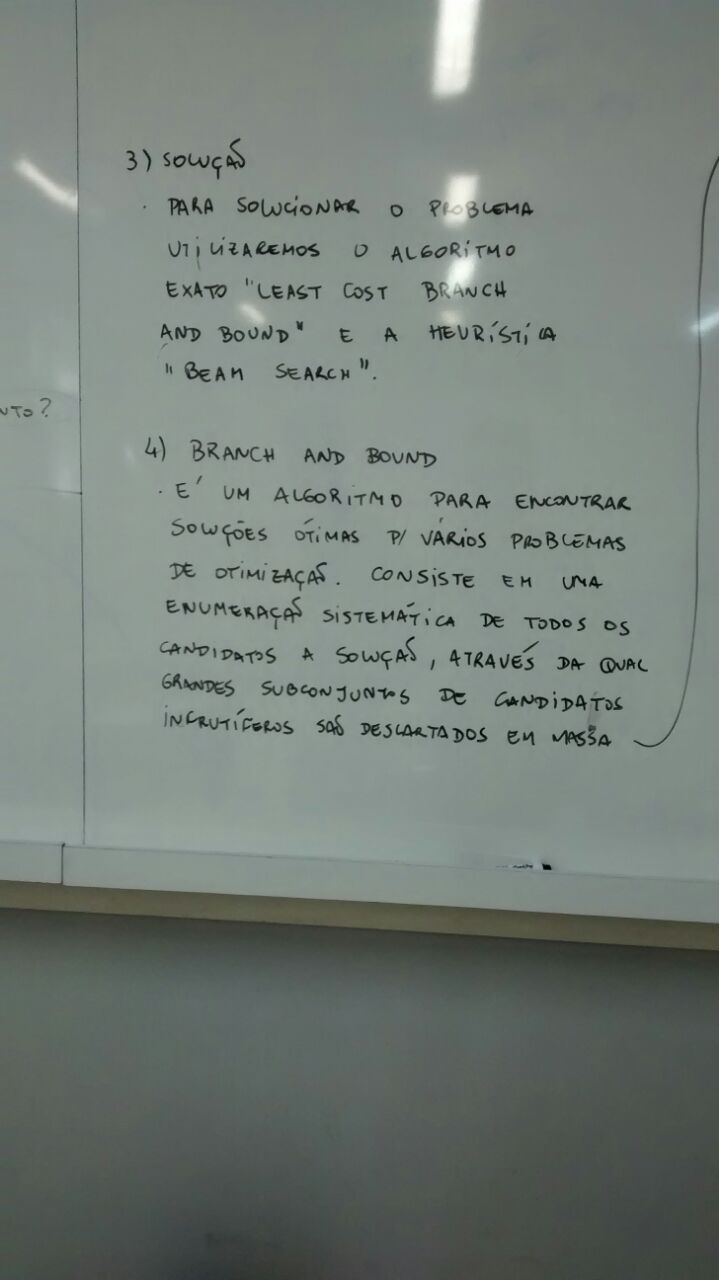 3) SOLUÇÃO
· PARA SOLUCIONAR O PROBLEMA
UTILIZAREMOS O ALGORÍTMO
EXATO "LEAST COST BRANCH
AND BOUND" E A HEURÍSTICA
"BEAM SEARCH".
NTO?
4) BRANCH AND BOUND
· E' UM ALGORITMO PARA ENCONTRAR
SOLUÇÕES ÓTIMAS P/ VÁRIOS PROBLEMAS
DE OTIMIZAÇÃO. CONSISTE EM UMA
ENUMERAÇÃO SISTEMÁTICA DE TODOS OS
CANDIDATOS A SOLUÇÃO, ATRAVÉS DA QUAL
GRANDES SUBCONJUNTOS DE CANDIDATOS
INFRUTÍFEROS SÃO DESCARTADOS EM MASSA